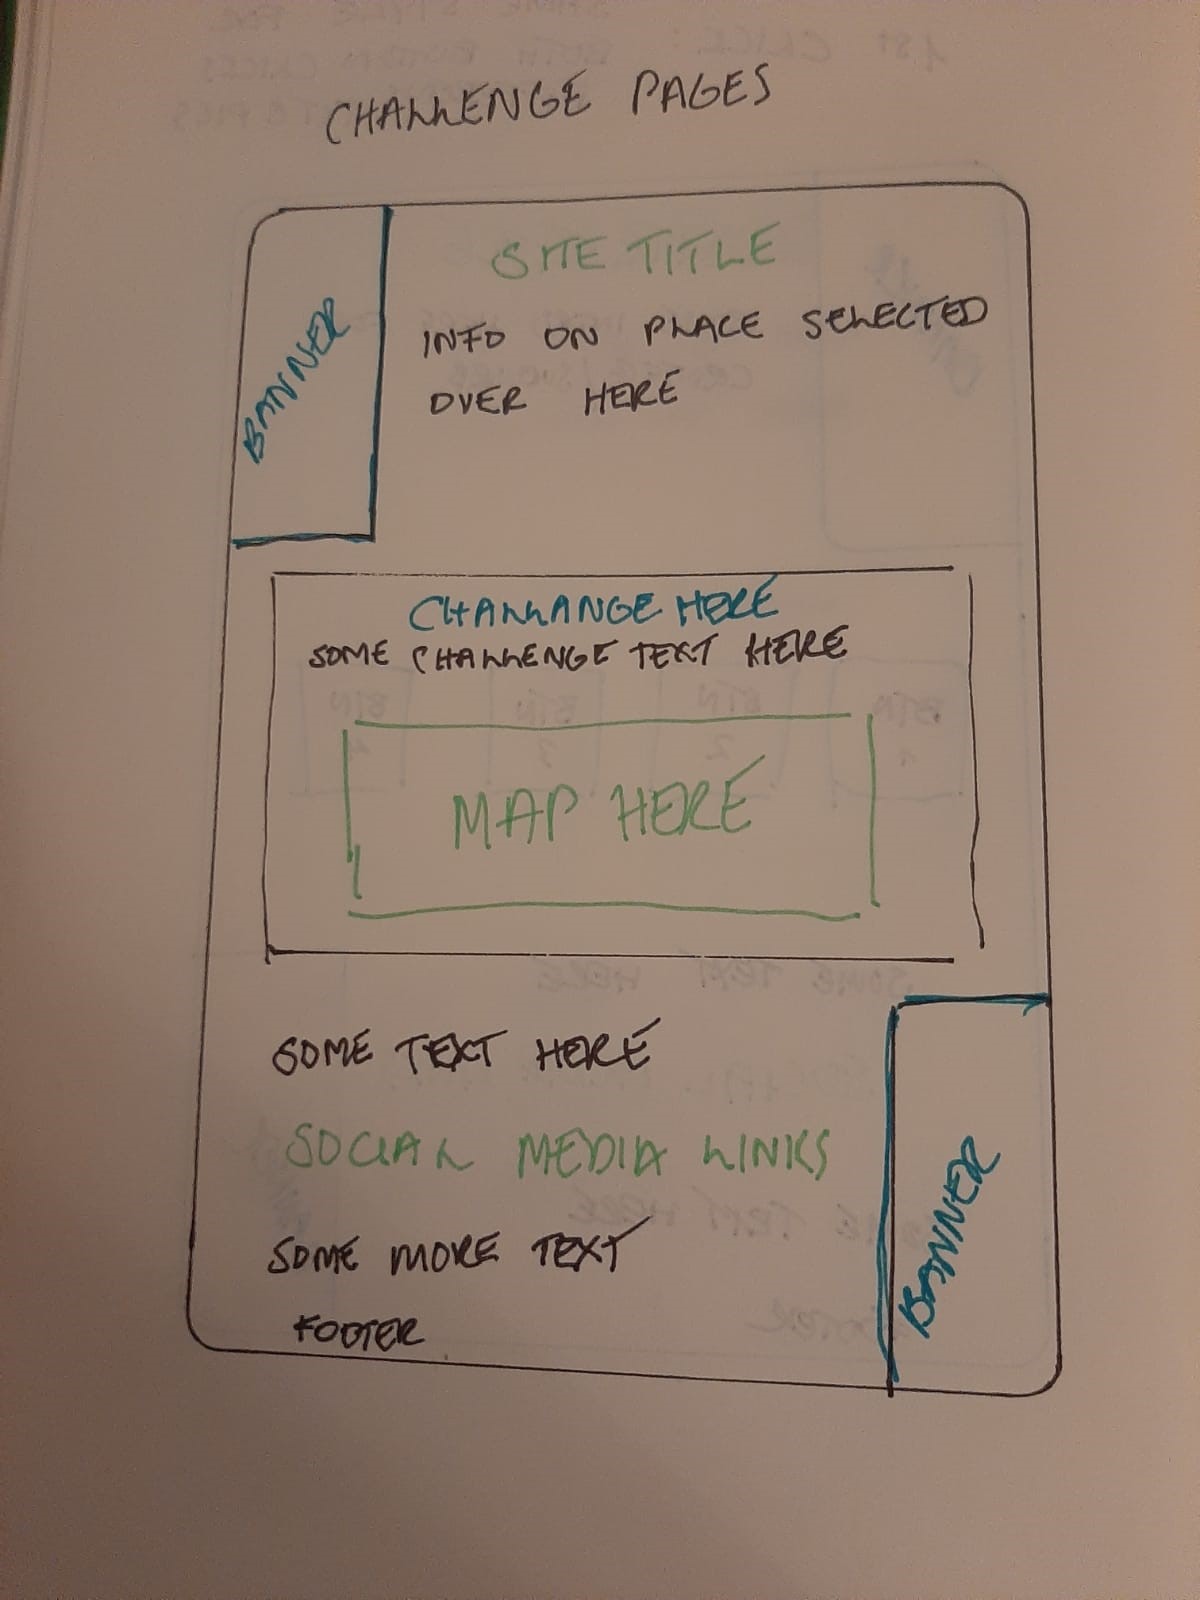 CHALLENGE PAGES
BANNER
SITE TITLE
INFO ON PLACE SELECTED
OVER HERE
CHALLANGE HERE
SOME CHALLENGE TEXT HERE
MAP HERE
SOME TEXT HERE
SOCIAL MEDIA LINKS
SOME MORE TEXT
FOOTER
BANNER